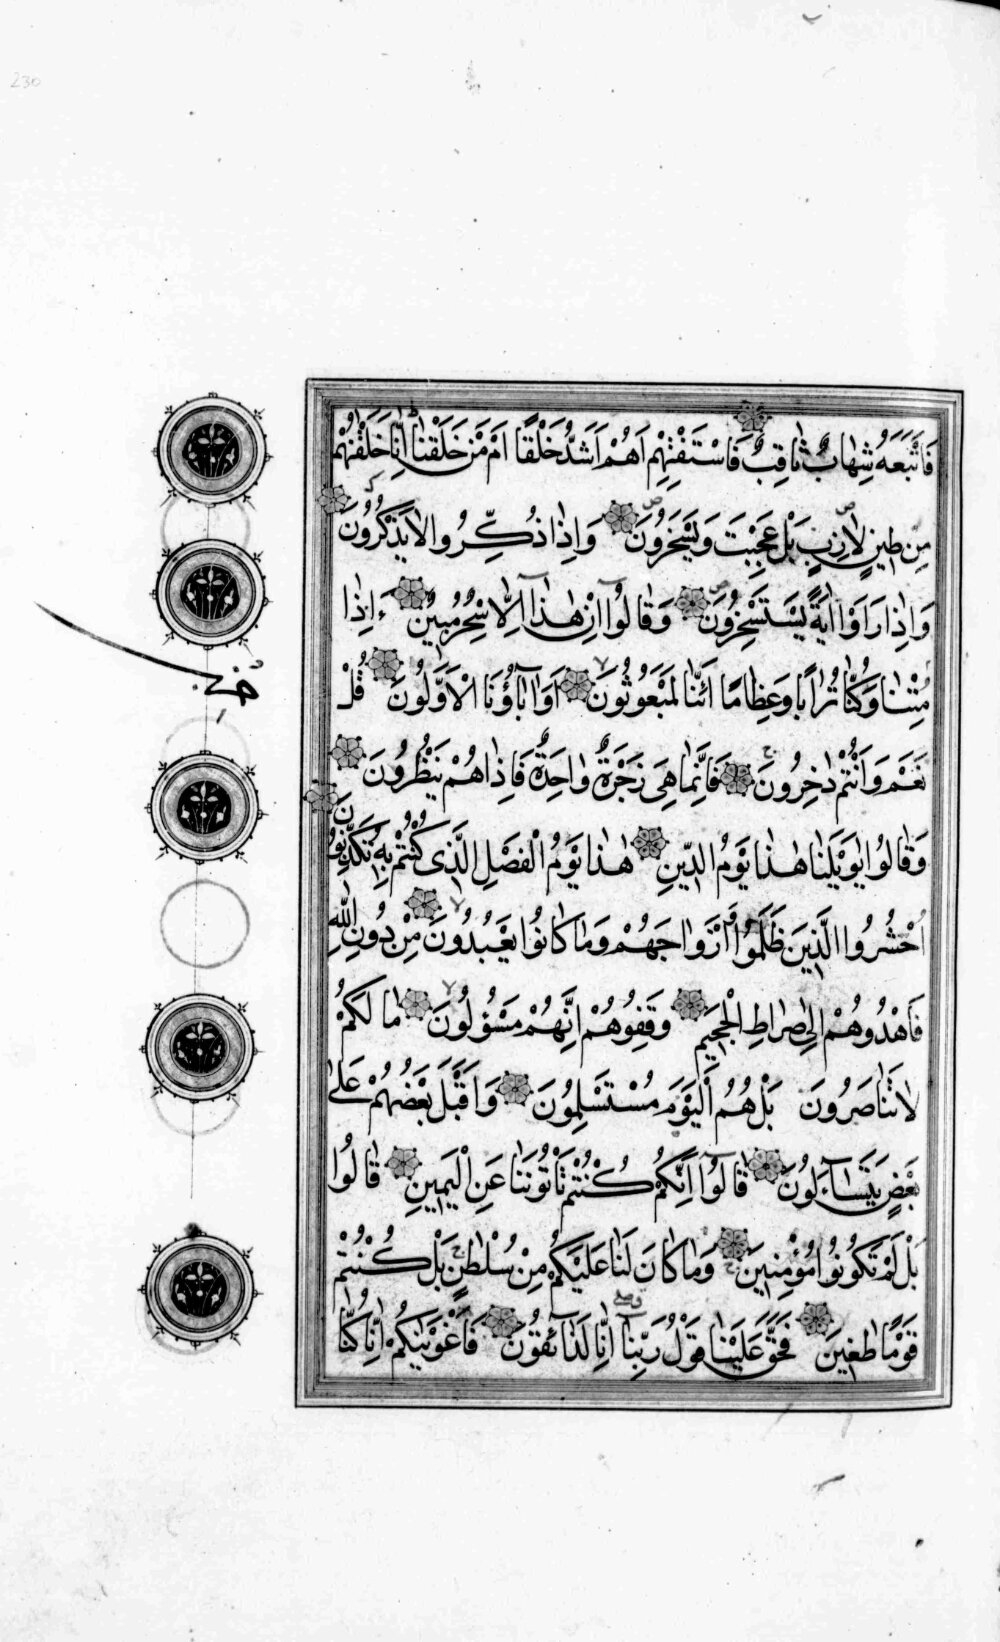 230
فَاَتْبَعَهُ شِهَابٌ ثَاقِبٌ فَاسْتَفْتِهِمْ اَهُمْ اَشَدُّ خَلْقًا اَمْ مَنْ خَلَقْنَا اِنَّا خَلَقْنٰهُمْ
مِنْ طِينٍ لَازِبٍ بَلْ عَجِبْتَ وَيَسْخَرُونَ وَاِذَا ذُكِّرُوا لَا يَذْكُرُونَ
وَاِذَا رَاَوْا اٰيَةً يَسْتَسْخِرُونَ وَقَالُوا اِنْ هٰذَا اِلَّا سِحْرٌ مُبِينٌ ءَاِذَا
مِتْنَا وَكُنَّا تُرَابًا وَعِظَامًا اَئِنَّا لَمَبْعُوثُونَ اَوَاٰبَاؤُنَا الْاَوَّلُونَ قُلْ
نَعَمْ وَاَنْتُمْ دَاخِرُونَ فَاِنَّمَا هِيَ زَجْرَةٌ وَاحِدَةٌ فَاِذَا هُمْ يَنْظُرُونَ
وَقَالُوا يٰوَيْلَنَا هٰذَا يَوْمُ الدِّينِ هٰذَا يَوْمُ الْفَصْلِ الَّذِى كُنْتُمْ بِهِ تُكَذِّبُونَ
اُحْشُرُوا الَّذِينَ ظَلَمُوا وَاَزْوَاجَهُمْ وَمَا كَانُوا يَعْبُدُونَ مِنْ دُونِ اللّٰهِ
فَاهْدُوهُمْ اِلٰى صِرَاطِ الْجَحِيمِ وَقِفُوهُمْ اِنَّهُمْ مَسْؤُلُونَ مَا لَكُمْ
لَا تَنَاصَرُونَ بَلْ هُمُ الْيَوْمَ مُسْتَسْلِمُونَ وَاَقْبَلَ بَعْضُهُمْ عَلٰى
بَعْضٍ يَتَسَاءَلُونَ قَالُوا اِنَّكُمْ كُنْتُمْ تَأْتُونَنَا عَنِ الْيَمِينِ قَالُوا
بَلْ لَمْ تَكُونُوا مُؤْمِنِينَ وَمَا كَانَ لَنَا عَلَيْكُمْ مِنْ سُلْطَانٍ بَلْ كُنْتُمْ
قَوْمًا طَاغِينَ فَحَقَّ عَلَيْنَا قَوْلُ رَبِّنَا اِنَّا لَذَائِقُونَ فَاَغْوَيْنَاكُمْ اِنَّا كُنَّا